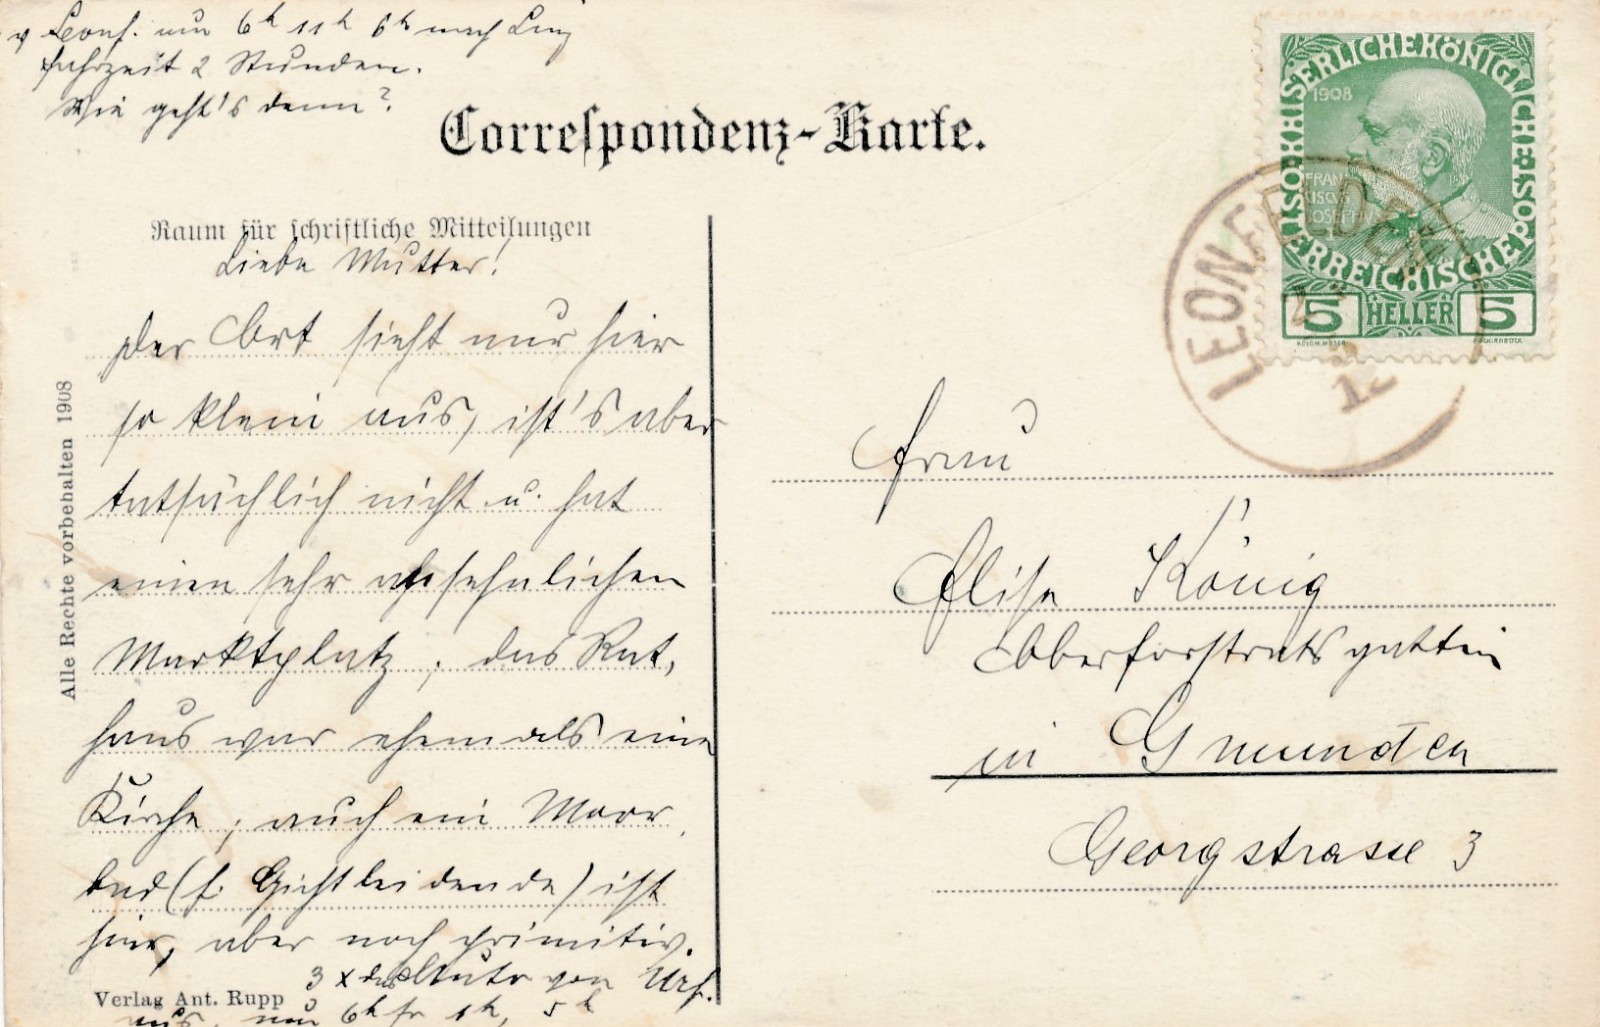 v. Leonf. um 6h 11h 6h nach Linz
Fahrzeit 2 Stunden.
Wie geht's denn?
Correspondenz-Karte.
Raum für schriftliche Mitteilungen
Liebe Mutter!
Der Ort sieht nur hier
so klein aus, ist's aber
tatsächlich nicht u. hat
einen sehr ansehnlichen
Marktplatz; das Rat,
haus war ehemals eine
Kirche; auch ein Moor,
bad (f. Gichtleidende) ist
hier, aber noch primitiv.
3 x das Auto von Urf.
aus, um 6h fr 1h, 5h
Verlag Ant. Rupp
Alle Rechte vorbehalten 1908
KAISERLICHE KÖNIGLICHE ÖSTERREICHISCHE POST
1908
FRAN
CISCVS
IOSEPHVS
5 HELLER 5
LEONFELDEN
12
Frau
Elise König
Oberforstratsgattin
in Gmunden
Georgstrasse 3